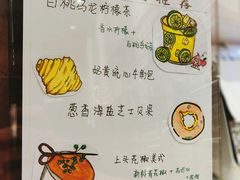 白桃乌龙柠檬茶
香水柠檬+
白桃乌龙
奶黄流心牛角包
葱香海盐芝士贝果
上头花椒美式